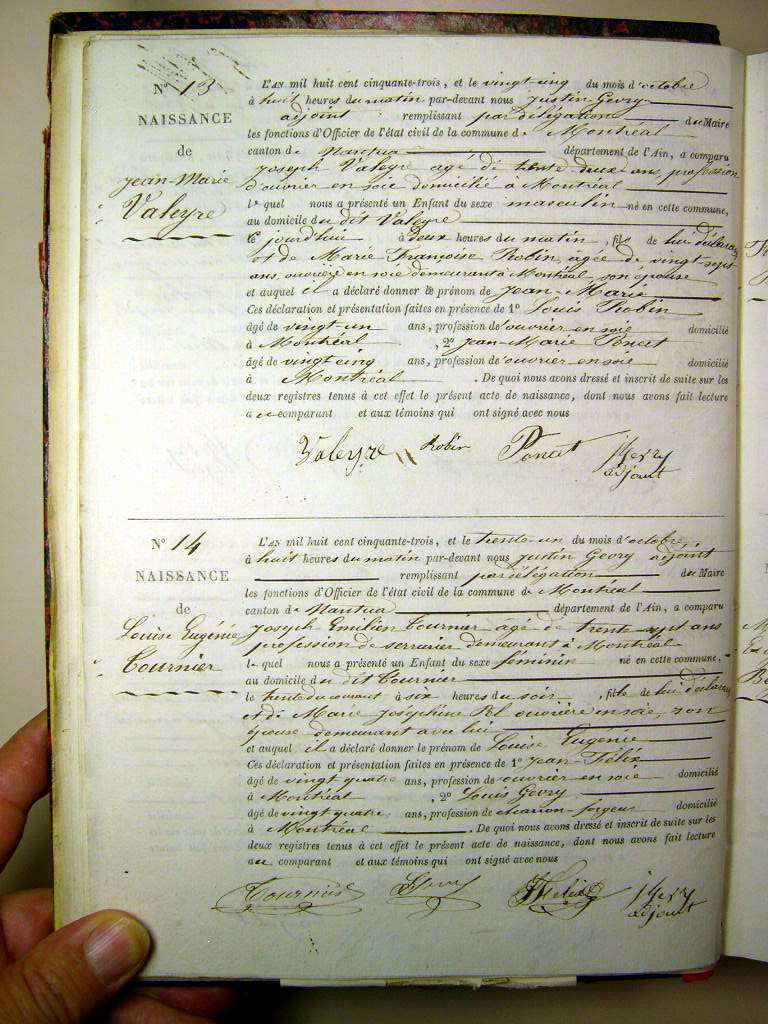 N° 13
NAISSANCE
de
Jean-Marie
Valeyre
L'AN mil huit cent cinquante-trois, et le vingt-cinq du mois d'octobre
à huit heures du matin par-devant nous Justin Gevry
adjoint remplissant par délégation du Maire
les fonctions d'Officier de l'état civil de la commune de Montréal
canton de Nantua département de l'Ain, a comparu
Joseph Valeyre agé de trente-deux ans profession
d'ouvrier en soie domicilié à Montréal
le quel nous a présenté un Enfant du sexe masculin né en cette commune,
au domicile du dit Valeyre
le jourd'hui à deux heures du matin, fils de lui déclarant
et de Marie Françoise Robin, agée de vingt-sept
ans, ouvrière en soie demeurant à Montréal son épouse
et auquel il a déclaré donner le prénom de Jean-Marie
Ces déclaration et présentation faites en présence de 1° Louis Robin
âgé de vingt-un ans, profession de ouvrier en soie domicilié
à Montréal , 2° Jean-Marie Poncet
âgé de vingt cinq ans, profession de ouvrier en soie domicilié
à Montréal . De quoi nous avons dressé et inscrit de suite sur les
deux registres tenus à cet effet le présent acte de naissance, dont nous avons fait lecture
a comparant et aux témoins qui ont signé avec nous
Valeyre Robin Poncet J Gevry
adjoint
N° 14
NAISSANCE
de
Louise Eugénie
Tournier
L'AN mil huit cent cinquante-trois, et le trente-un du mois d'octobre
à huit heures du matin par-devant nous Justin Gevry adjoint
remplissant par délégation du Maire
les fonctions d'Officier de l'état civil de la commune de Montréal
canton de Nantua département de l'Ain, a comparu
Joseph Emilien Tournier agé de trente sept ans
profession de serrurier demeurant à Montréal
le quel nous a présenté un Enfant du sexe féminin né en cette commune,
au domicile du dit Tournier
le trente du courant à six heures du soir , fille de lui déclarant
et de Marie Joséphine ouvrière en soie, son
épouse demeurant avec lui
et auquel il a déclaré donner le prénom de Louise Eugénie
Ces déclaration et présentation faites en présence de 1° Jean Félix
âgé de vingt quatre ans, profession de ouvrier en soie domicilié
à Montréal , 2° Louis Gevry
âgé de vingt quatre ans, profession de charron-forgeur domicilié
à Montréal . De quoi nous avons dressé et inscrit de suite sur les
deux registres tenus à cet effet le présent acte de naissance, dont nous avons fait lecture
au comparant et aux témoins qui ont signé avec nous
Tournier Gevry Félix J Gevry
adjoint